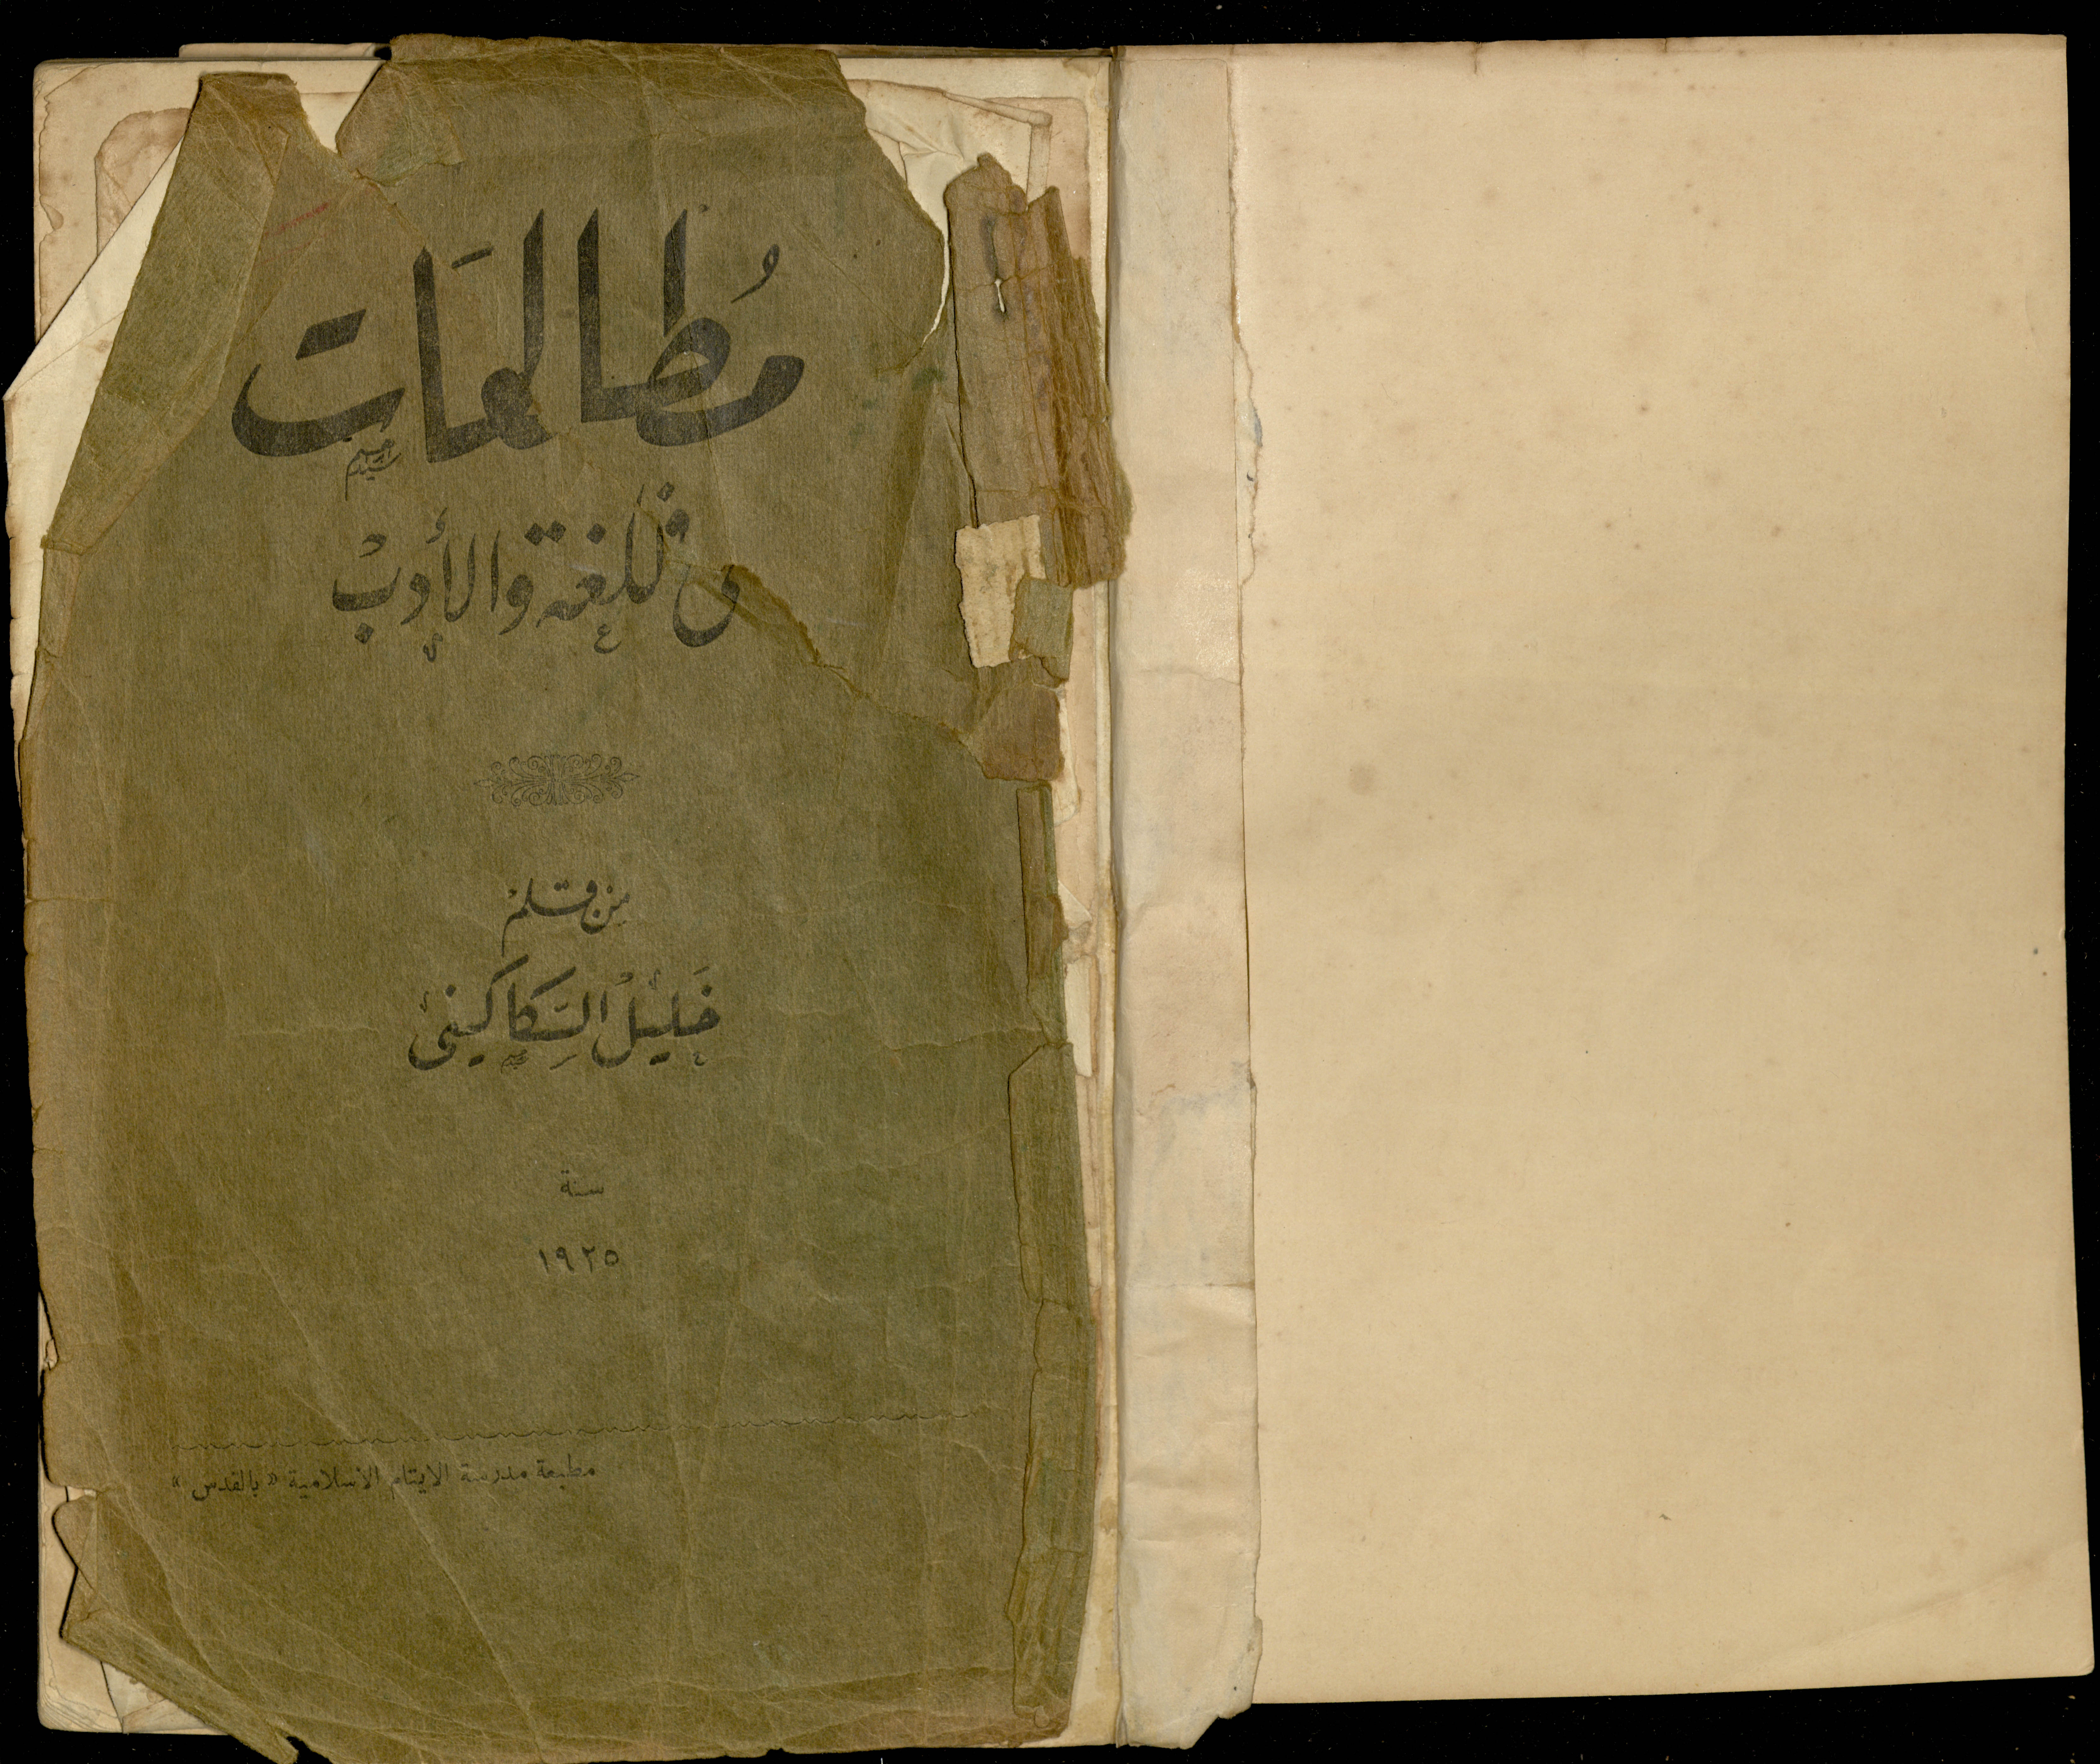 مُطالعَات
في اللغة والأدبْ
مِنْ قلمْ
خَليْل السَّكاكيني
سنة
١٩٢٥
مطبعة مدرسة الايتام الاسلامية « بالقدس »